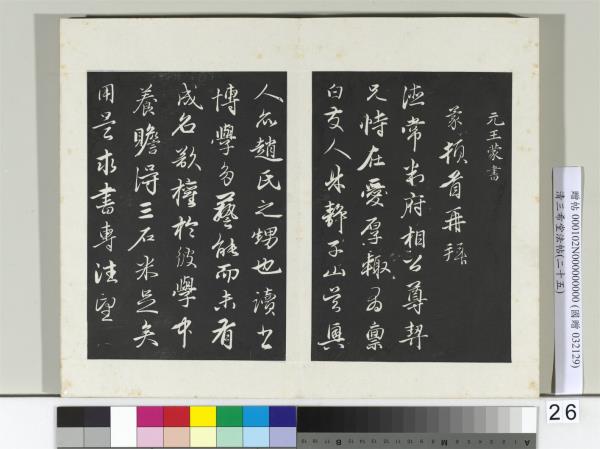 元王蒙書
蒙頓首再拜
德常判府相公尊契
兄恃在愛厚輒為稟
白友人靜子山吳興
人亦趙氏之甥也讀書
博學多藝能而未有
成名欲權於彼學中
養贍得三石米足矣
用是求書專注望
贈帖 000102N000000000 (國贈 032129)
清三希堂法帖(二十五)
26